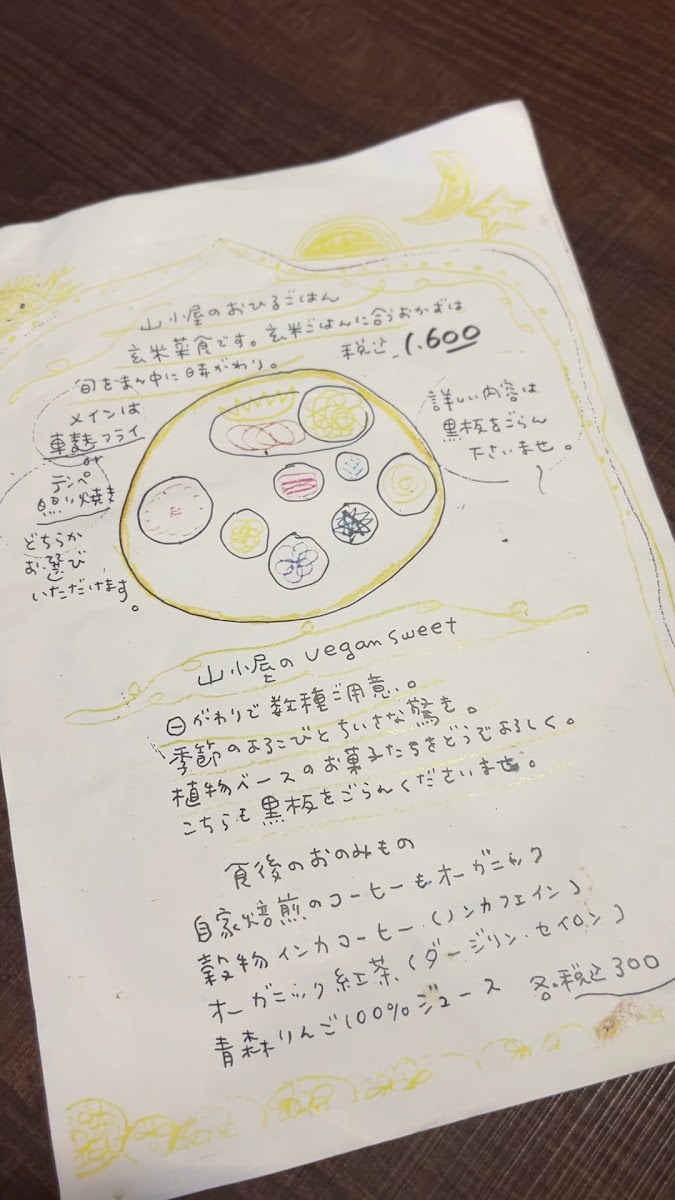 山小屋のおひるごはん
玄米菜食です。玄米ごはんに合うおかずは
旬をまん中に日替がわり。
税込 1.600
メインは
車麩フライ
or
テンペ
照り焼き
どちらか
お選び
いただけます。
詳しい内容は
黒板をごらん
下さいませ。
山小屋の vegan sweet
日がわりで数種ご用意。
季節のよろこびとちいさな驚き。
植物ベースのお菓子たちをどうぞよろしく。
こちらも黒板をごらんくださいませ。
食後のおのみもの
自家焙煎のコーヒーもオーガニック
穀物インカコーヒー(ノンカフェイン)
オーガニック紅茶(ダージリン・セイロン)
青森りんご100%ジュース
各・税込300